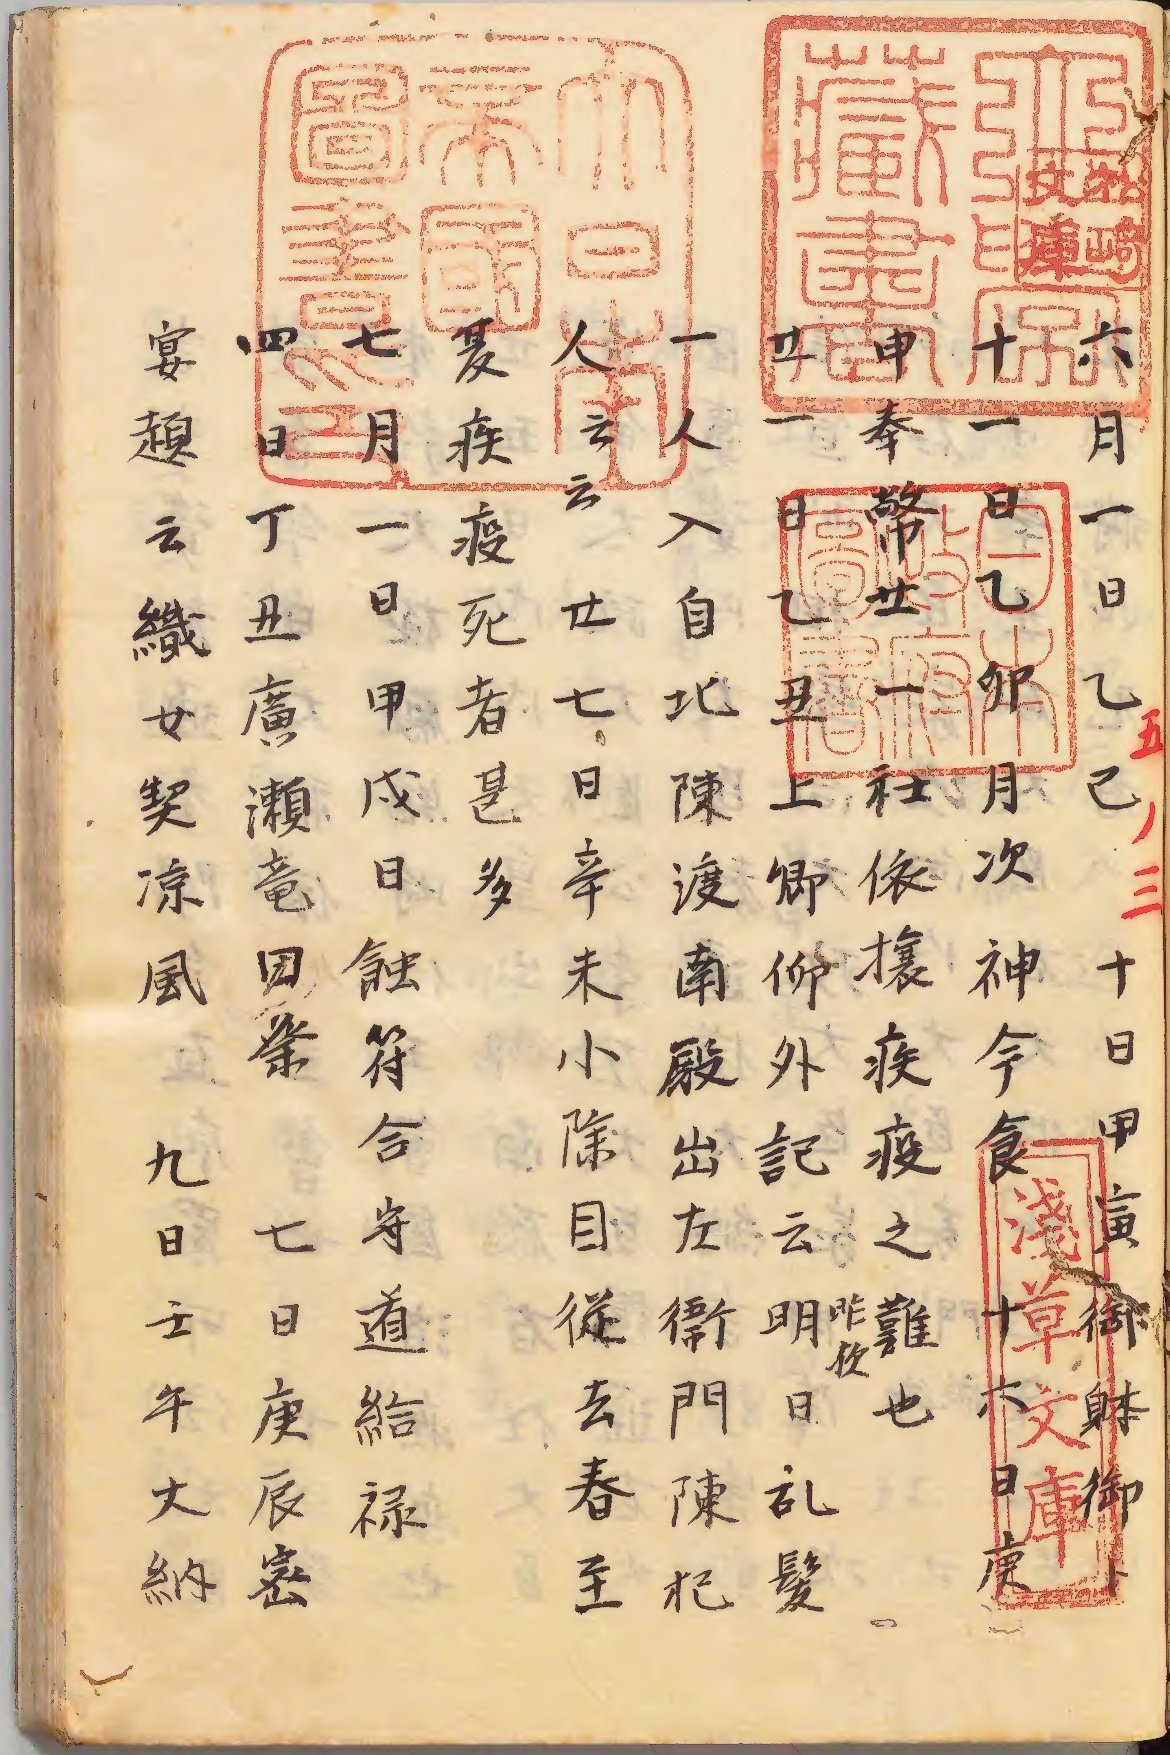 六月一日乙巳　十日甲寅御躰御卜
十一日乙卯月次神今食　十六日庚
申奉幣廿一社依攘疾疫之難也
廿一日乙丑上卿仰外記云明日乱髪
昨欤
一人入自北陳渡南殿出左衛門陳把
人云云　廿七日辛未小除目従去春至
夏疾疫死者甚多
七月一日甲戌日蝕符合守道給禄
四日丁丑廣瀬竜田祭　七日庚辰密
宴題云織女契凉風　九日壬午大納
五ノ三
大日本
帝國
圖書印
日本
政府
圖書
淺草文庫
松崎
文庫
藏書